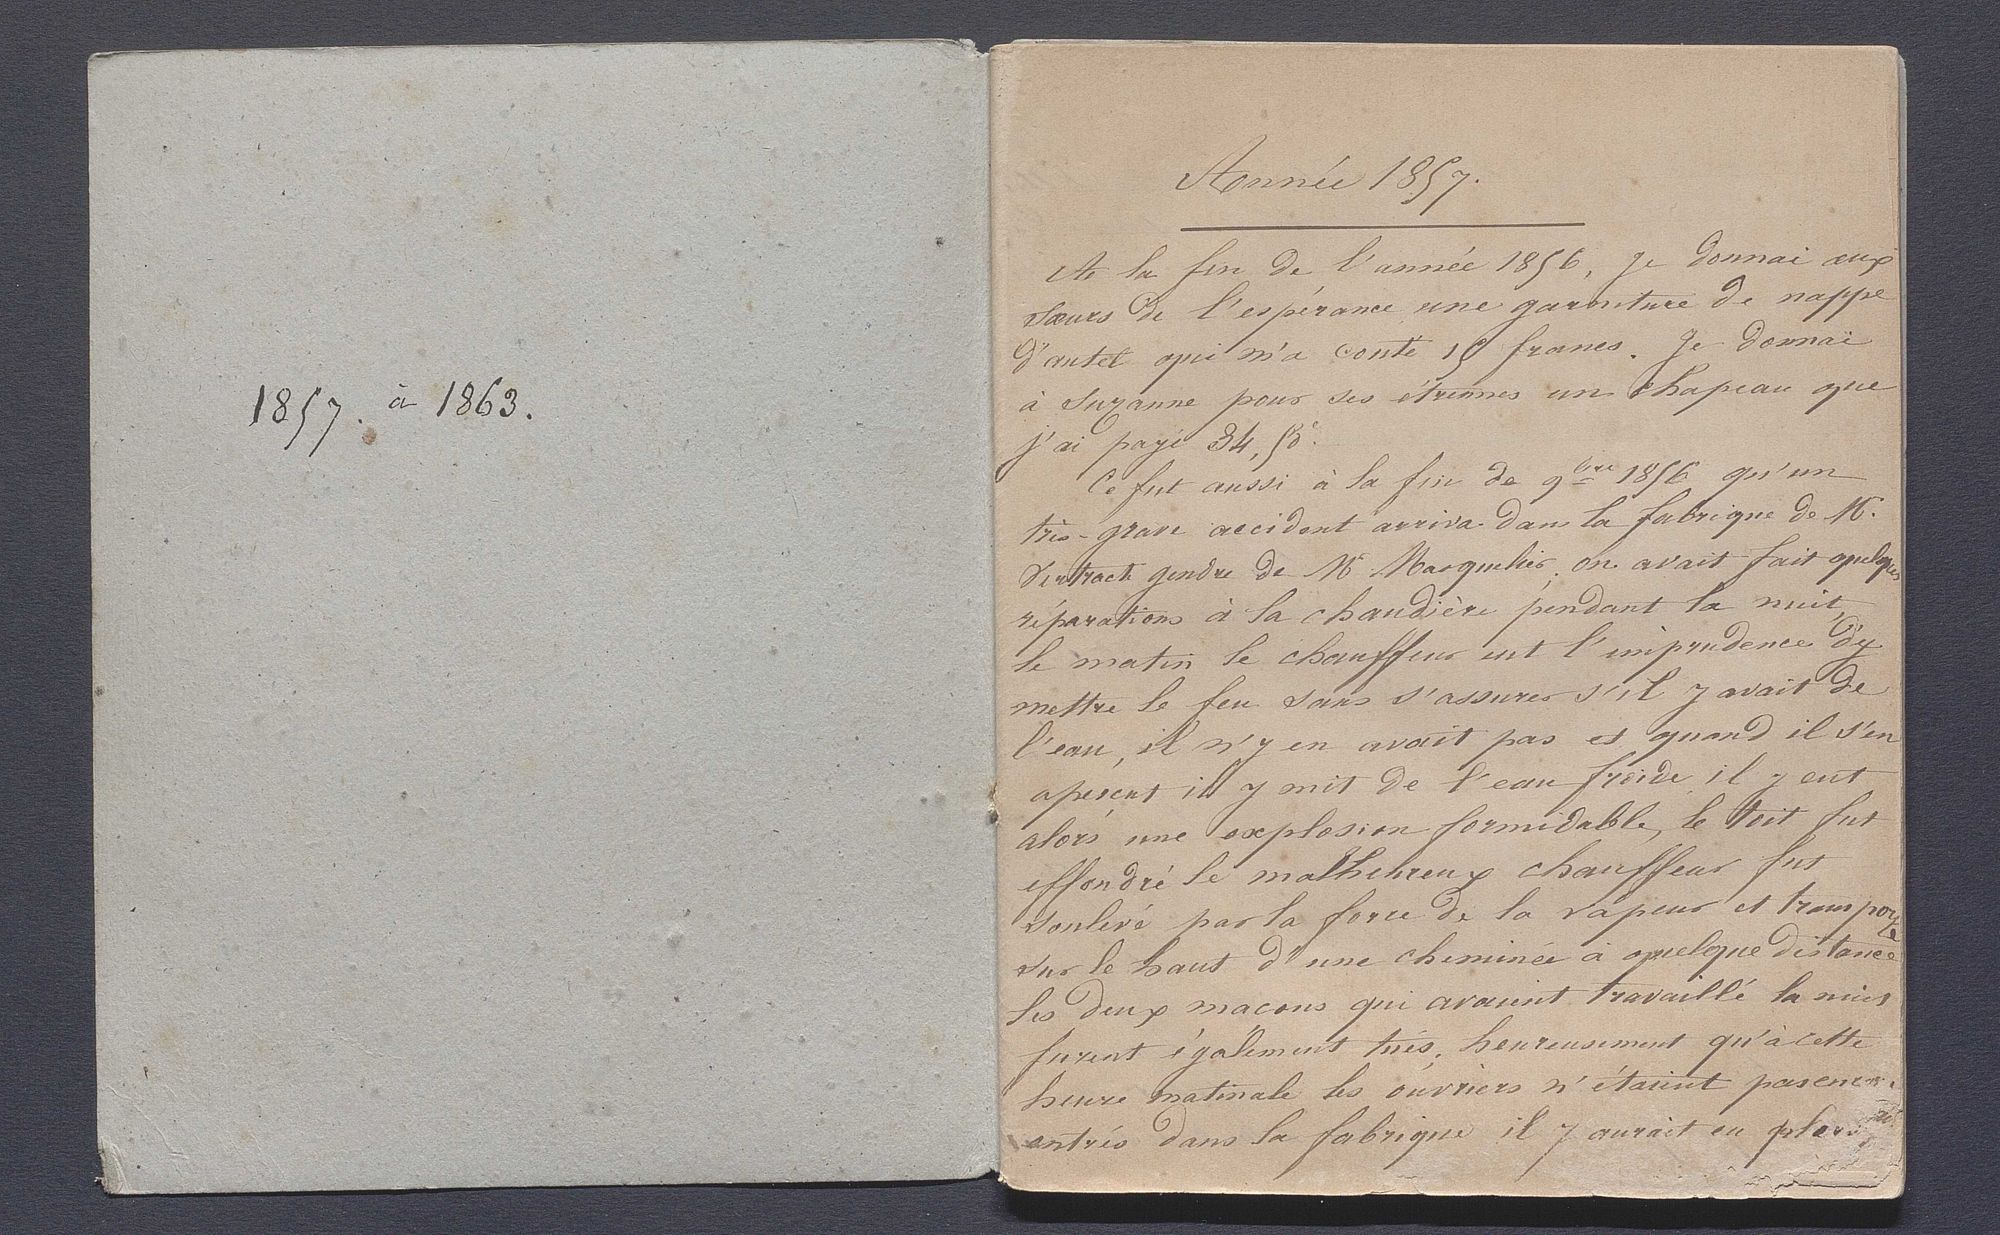 1857. à 1863.
Année 1857.
A la fin de l'année 1856, je donnai aux
sœurs de l'espérance une garniture de nappe
d'autel qui m'a couté 15 francs. Je donnai
à Suzanne pour ses étrennes un chapeau que
j'ai payé 34,50c.
Ce fut aussi à la fin de 9bre 1856 qu'un
très-grave accident arriva dans la fabrique de M.
gendre de Mr Masquelier. on avait fait quelques
réparations à la chaudière pendant la nuit,
le matin le chauffeur eut l'imprudence d'y
mettre le feu sans s'assurer s'il y avait de
l'eau, il n'y en avait pas et quand il s'en
aperçut il y mit de l'eau froide il y eut
alors une explosion formidable, le toit fut
effondré le malheureux chauffeur fut
soulevé par la force de la vapeur et transporté
sur le haut d'une cheminée à quelque distance
les deux maçons qui avaient travaillé la nuit
furent également tués. heureusement qu'à cette
heure matinale les ouvriers n'étaient pas
entrés dans la fabrique il y aurait eu plus